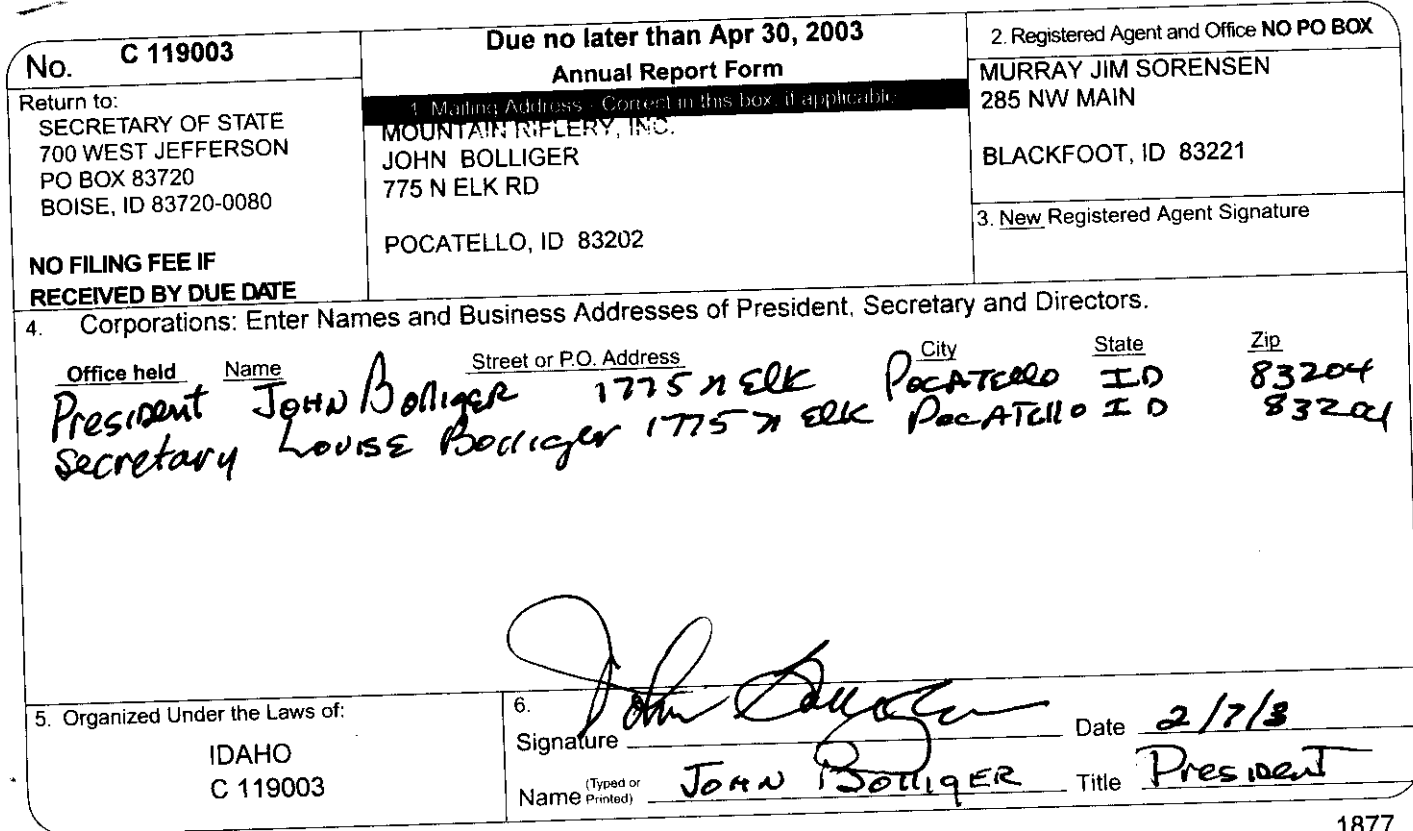 No. C 119003
Return to:
SECRETARY OF STATE
700 WEST JEFFERSON
PO BOX 83720
BOISE, ID 83720-0080
NO FILING FEE IF
RECEIVED BY DUE DATE
Due no later than Apr 30, 2003
Annual Report Form
1. Mailing Address - Correct in this box, if applicable
MOUNTAIN RIFLERY, INC.
JOHN BOLLIGER
775 N ELK RD
POCATELLO, ID 83202
2. Registered Agent and Office NO PO BOX
MURRAY JIM SORENSEN
285 NW MAIN
BLACKFOOT, ID 83221
3. New Registered Agent Signature
4. Corporations: Enter Names and Business Addresses of President, Secretary and Directors.
Office held Name Street or P.O. Address City State Zip
President John Bolliger 1775 N Elk Pocatello ID 83204
Secretary Louise Bolliger 1775 N Elk Pocatello ID 83204
5. Organized Under the Laws of:
IDAHO
C 119003
6.
Signature John Bolliger Date 2/7/3
Name (Typed or Printed) John Bolliger Title President
1877